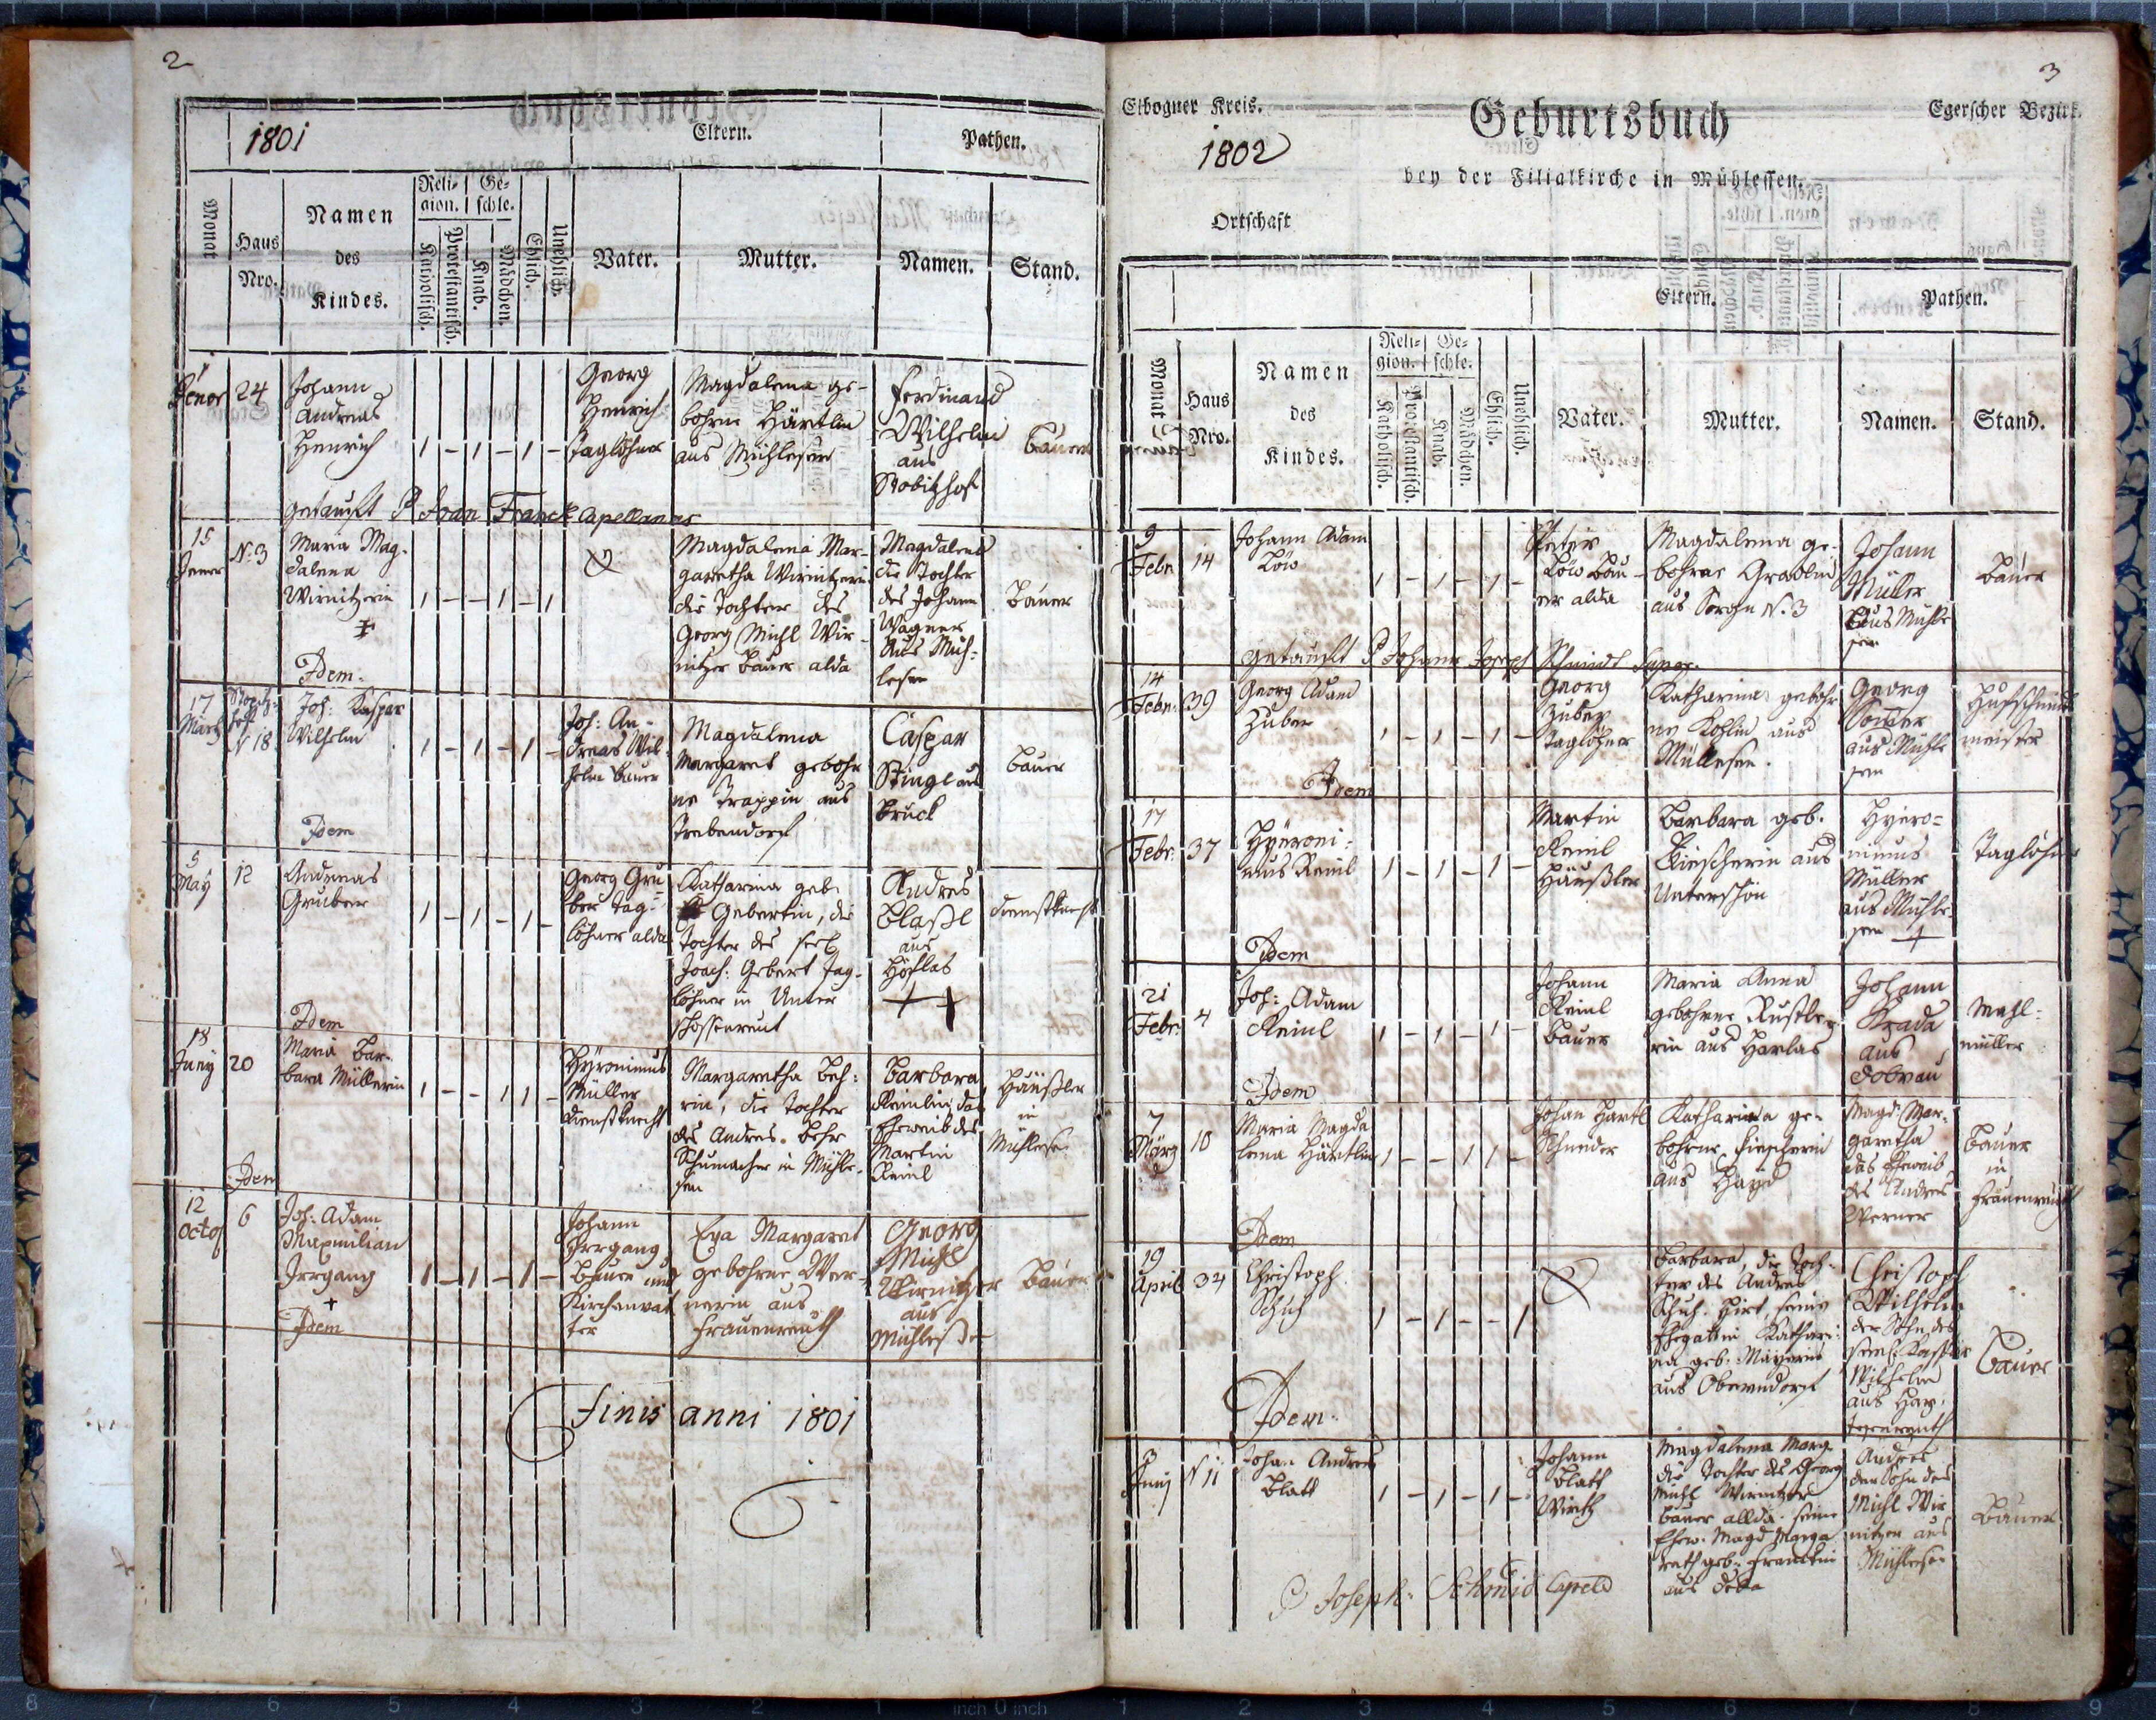 2
1801
Eltern.
Pathen.
Monat
Haus
Nro.
Namen
des
Kindes.
Reli-
gion.
Ge-
schle.
Katholisch.
Protestantisch.
Knab.
Mädchen.
Ehlich.
Unehlich.
Vater.
Mutter.
Namen.
Stand.
Jener
24
Johann
Andreas
Henrich
1 – 1 – 1 –
Georg
Henrich
Taglöhner
Magdalena ge-
bohrne Härtlin
aus Mühlesen
Ferdinand
Wilhelm
aus
Stobitzhof
Bauer
getauft P Joan Franck Capellanus
15
Jener
N. 3
Maria Mag-
dalena
Wirnitzerin
1 – – 1 – 1
Magdalena Mar-
garetha Wirnitzerin
die Tochter des
Georg Michl Wir-
nitzer Bauer alda
Magdalena
die Tochter
des Johann
Wagner
aus Müh-
lesen
Bauer
Idem.
17
März
N 18
Joh: Kaspar
Wilhelm
1 – 1 – 1 –
Joh: An-
dreas Wil-
helm Bauer
Magdalena
Margaret gebohr
ne Trappin aus
Trebendorf
Caspar
Stingl aus
Bruck
Bauer
Idem
5
May
12
Andreas
Gruber
1 – 1 – 1 –
Georg Gru
ber Tag-
löhner alda
Katharina geb.
Gebertin, die
Tochter des seel
Joach: Gebert Tag-
löhner in Unter
schossenreut
Andres
Blaßl
aus
Höflas
Dienstknecht
Idem
18
Juny
20
Maria Bar-
bara Müllerin
1 – – 1 1 –
Hyronimus
Müller
Dienstknecht
Margaretha Beh-
rin, die Tochter
des Andres Behr
Schumacher in Mühle-
sen
Barbara
Reinlin, das
Eheweib des
Martin
Reinl
Häußler
in
Mühlesen
Idem
12
Octob
6
Joh: Adam
Maxmilian
Irrgang
1 – 1 – 1 –
Johann
Irrgang
Bauer und
Kirchenvat
ter
Eva Margaret
gebohrne Wer-
nerin aus
Frauenreuth
Georg
Michl
Wirnitzer
aus
Mühlessen
Bauer
Idem
Finis anni 1801
3
Elbogner Kreis.
Geburtsbuch
Egerscher Bezirk.
1802
bey der Filialkirche in Mühlessen.
Ortschaft
Eltern.
Pathen.
Monat
Haus
Nro.
Namen
des
Kindes.
Reli-
gion.
Ge-
schle.
Katholisch.
Protestantisch.
Knab.
Mädchen.
Ehlich.
Unehlich.
Vater.
Mutter.
Namen.
Stand.
9
Febr.
14
Johann Adam
Löw
1 – 1 – 1 –
Peter
Löw Bau-
er alda
Magdalena ge-
bohrne Gradlin
aus Sorgen N. 3
Johann
Müller
aus Mühle
sen
Bauer
getauft P Johann Joseph Schmidt
14
Febr.
39
Georg Adam
Zuber
1 – 1 – 1 –
Georg
Zuber
Taglöhner
Katharina gebohr
ne Kohlin aus
Müllesen.
Georg
aus Mühle
sen
Hufschmied
meister
Idem
17
Febr.
37
Hyeroni-
mus Reinl
1 – 1 – 1 –
Martin
Reinl
Häußler
Barbara geb.
aus
Unterschön
Hyero-
nimus
Müller
aus Mühle
sen
Taglöhner
Idem
21
Febr.
4
Joh: Adam
Reinl
1 – 1 – 1 –
Johann
Reinl
Bauer
Maria Anna
gebohrne Rustle-
rin aus Harlas
Johann
Krada
aus
Dobrau
Mahl-
müller
Idem
7
März
10
Maria Magda
lena Härtlin
1 – – 1 1 –
Johan Hartl
Schneider
Katharina ge-
bohrne Fischerin
aus Hayd
Magd: Mar-
garetha
das Eheweib
des Andres
Werner
Bauer
in
Frauenreuth
Idem
19
April
34
Christoph
Schuh
1 – 1 – – 1
Barbara, die Toch-
ter des Andres
Schuh Hirt, seine
Ehegattin Kathari-
na geb. Mayerin
aus Oberndorf
Christoph
Wilhelm
der Sohn des
Kaspar
Wilhelm
aus
Bauer
Idem
3
Juny
N 11
Johan Andres
Blatt
1 – 1 – 1 –
Johann
Blatt
Wirth
Magdalena Marg
die Tochter des Georg
Michl Wirnitzer
Bauer allda. seine
Ehew. Magd Marga
reth geb. Franckin
aus
Andres
der Sohn des
Michl Wir
nitzer aus
Mühlesen
Bauer
P Joseph: Schmid